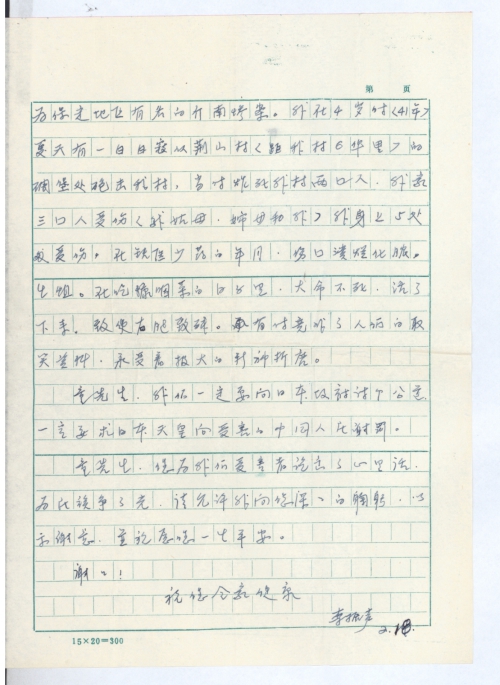 第 页
为保走地区有名的 南 案。我在4岁时〈41年〉
夏天有一日日寇从荆山村〈距我村6华里〉的
碉堡处炮击我村，当时炸死我村两口人，我家
三口人受伤〈我姑母、婶母和我〉我身上5处
被受伤。在缺医少药的年月，伤口溃烂化脓。
生蛆。在吃糠咽菜的日子里，大命不死，活了
下来。致使右腿致残。 有时竟成了人们的取
笑 ，承受着极大的精神折磨。
童先生，我们一定要向日本政府讨个公道
一定要求日本天皇向受害的中国人民谢罪。
童先生，您为我们受害者说出了心里话，
为民族争了光，请允许我向您深ミ的鞠躬，以
示谢意，并祝愿您一生平安。
谢ミ！
祝您全家健康
李振声
2.18.
15×20=300